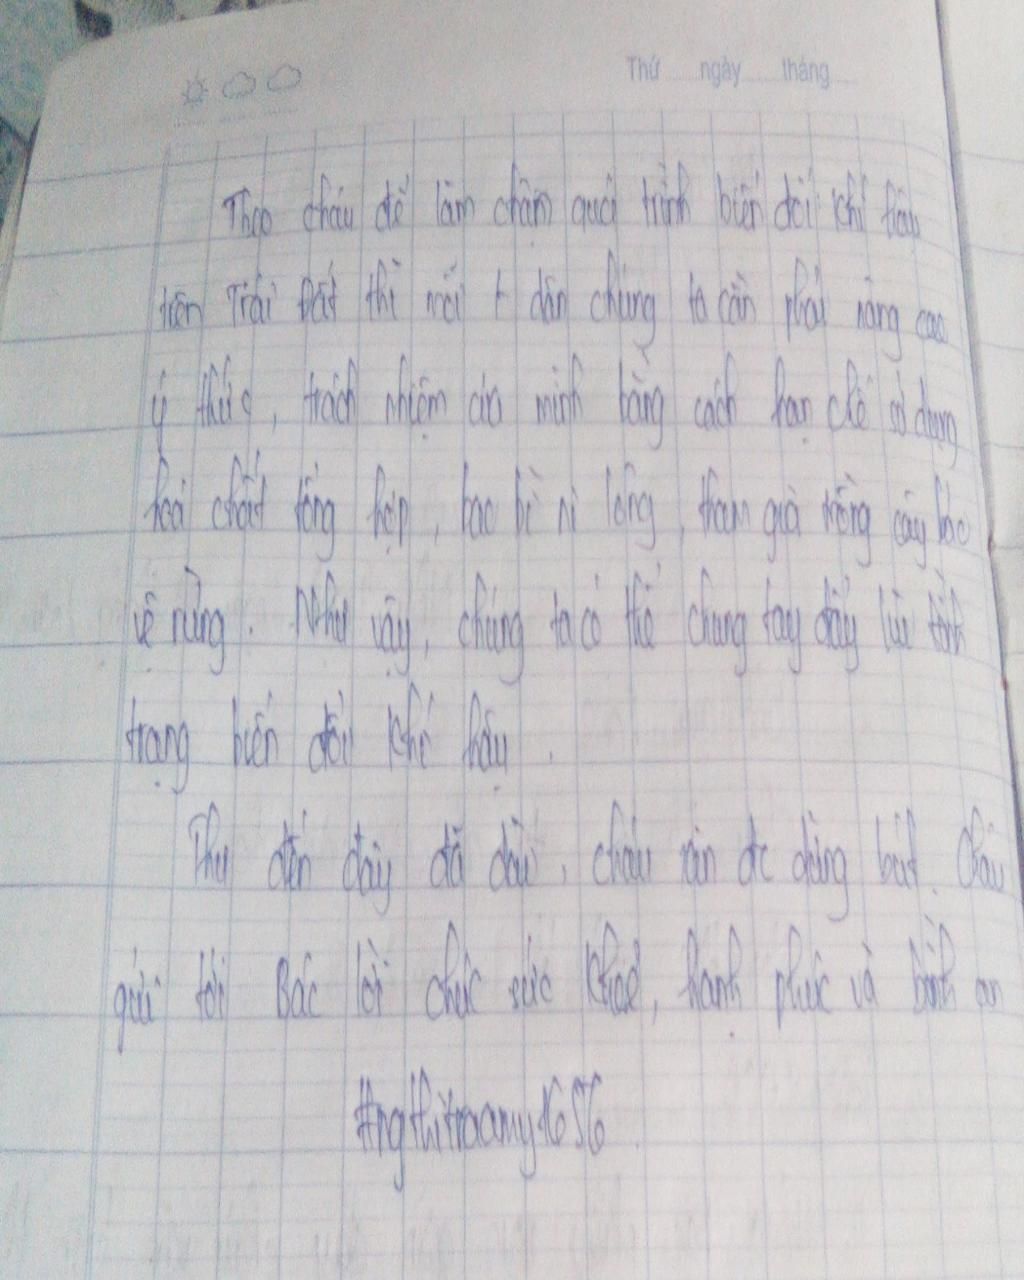 Thứ ngày tháng
Theo cháu để làm chậm quá trình biến đổi khí hậu
trên Trái Đất thì mỗi dân chúng ta cần phải nâng cao
ý thức, trách nhiệm của mình bằng cách hạn chế sử dụng
hoá chất tổng hợp, bao bì ni lông, tham gia trồng cây bảo
vệ rừng. Như vậy, chúng ta có thể chung tay đẩy lùi tình
trạng biến đổi khí hậu.
Thư đến đây đã dài, cháu xin đc dừng bút. Cháu
gửi tới Bác lời chúc sức khoẻ, hạnh phúc và bình an
#ngthitraamy1656